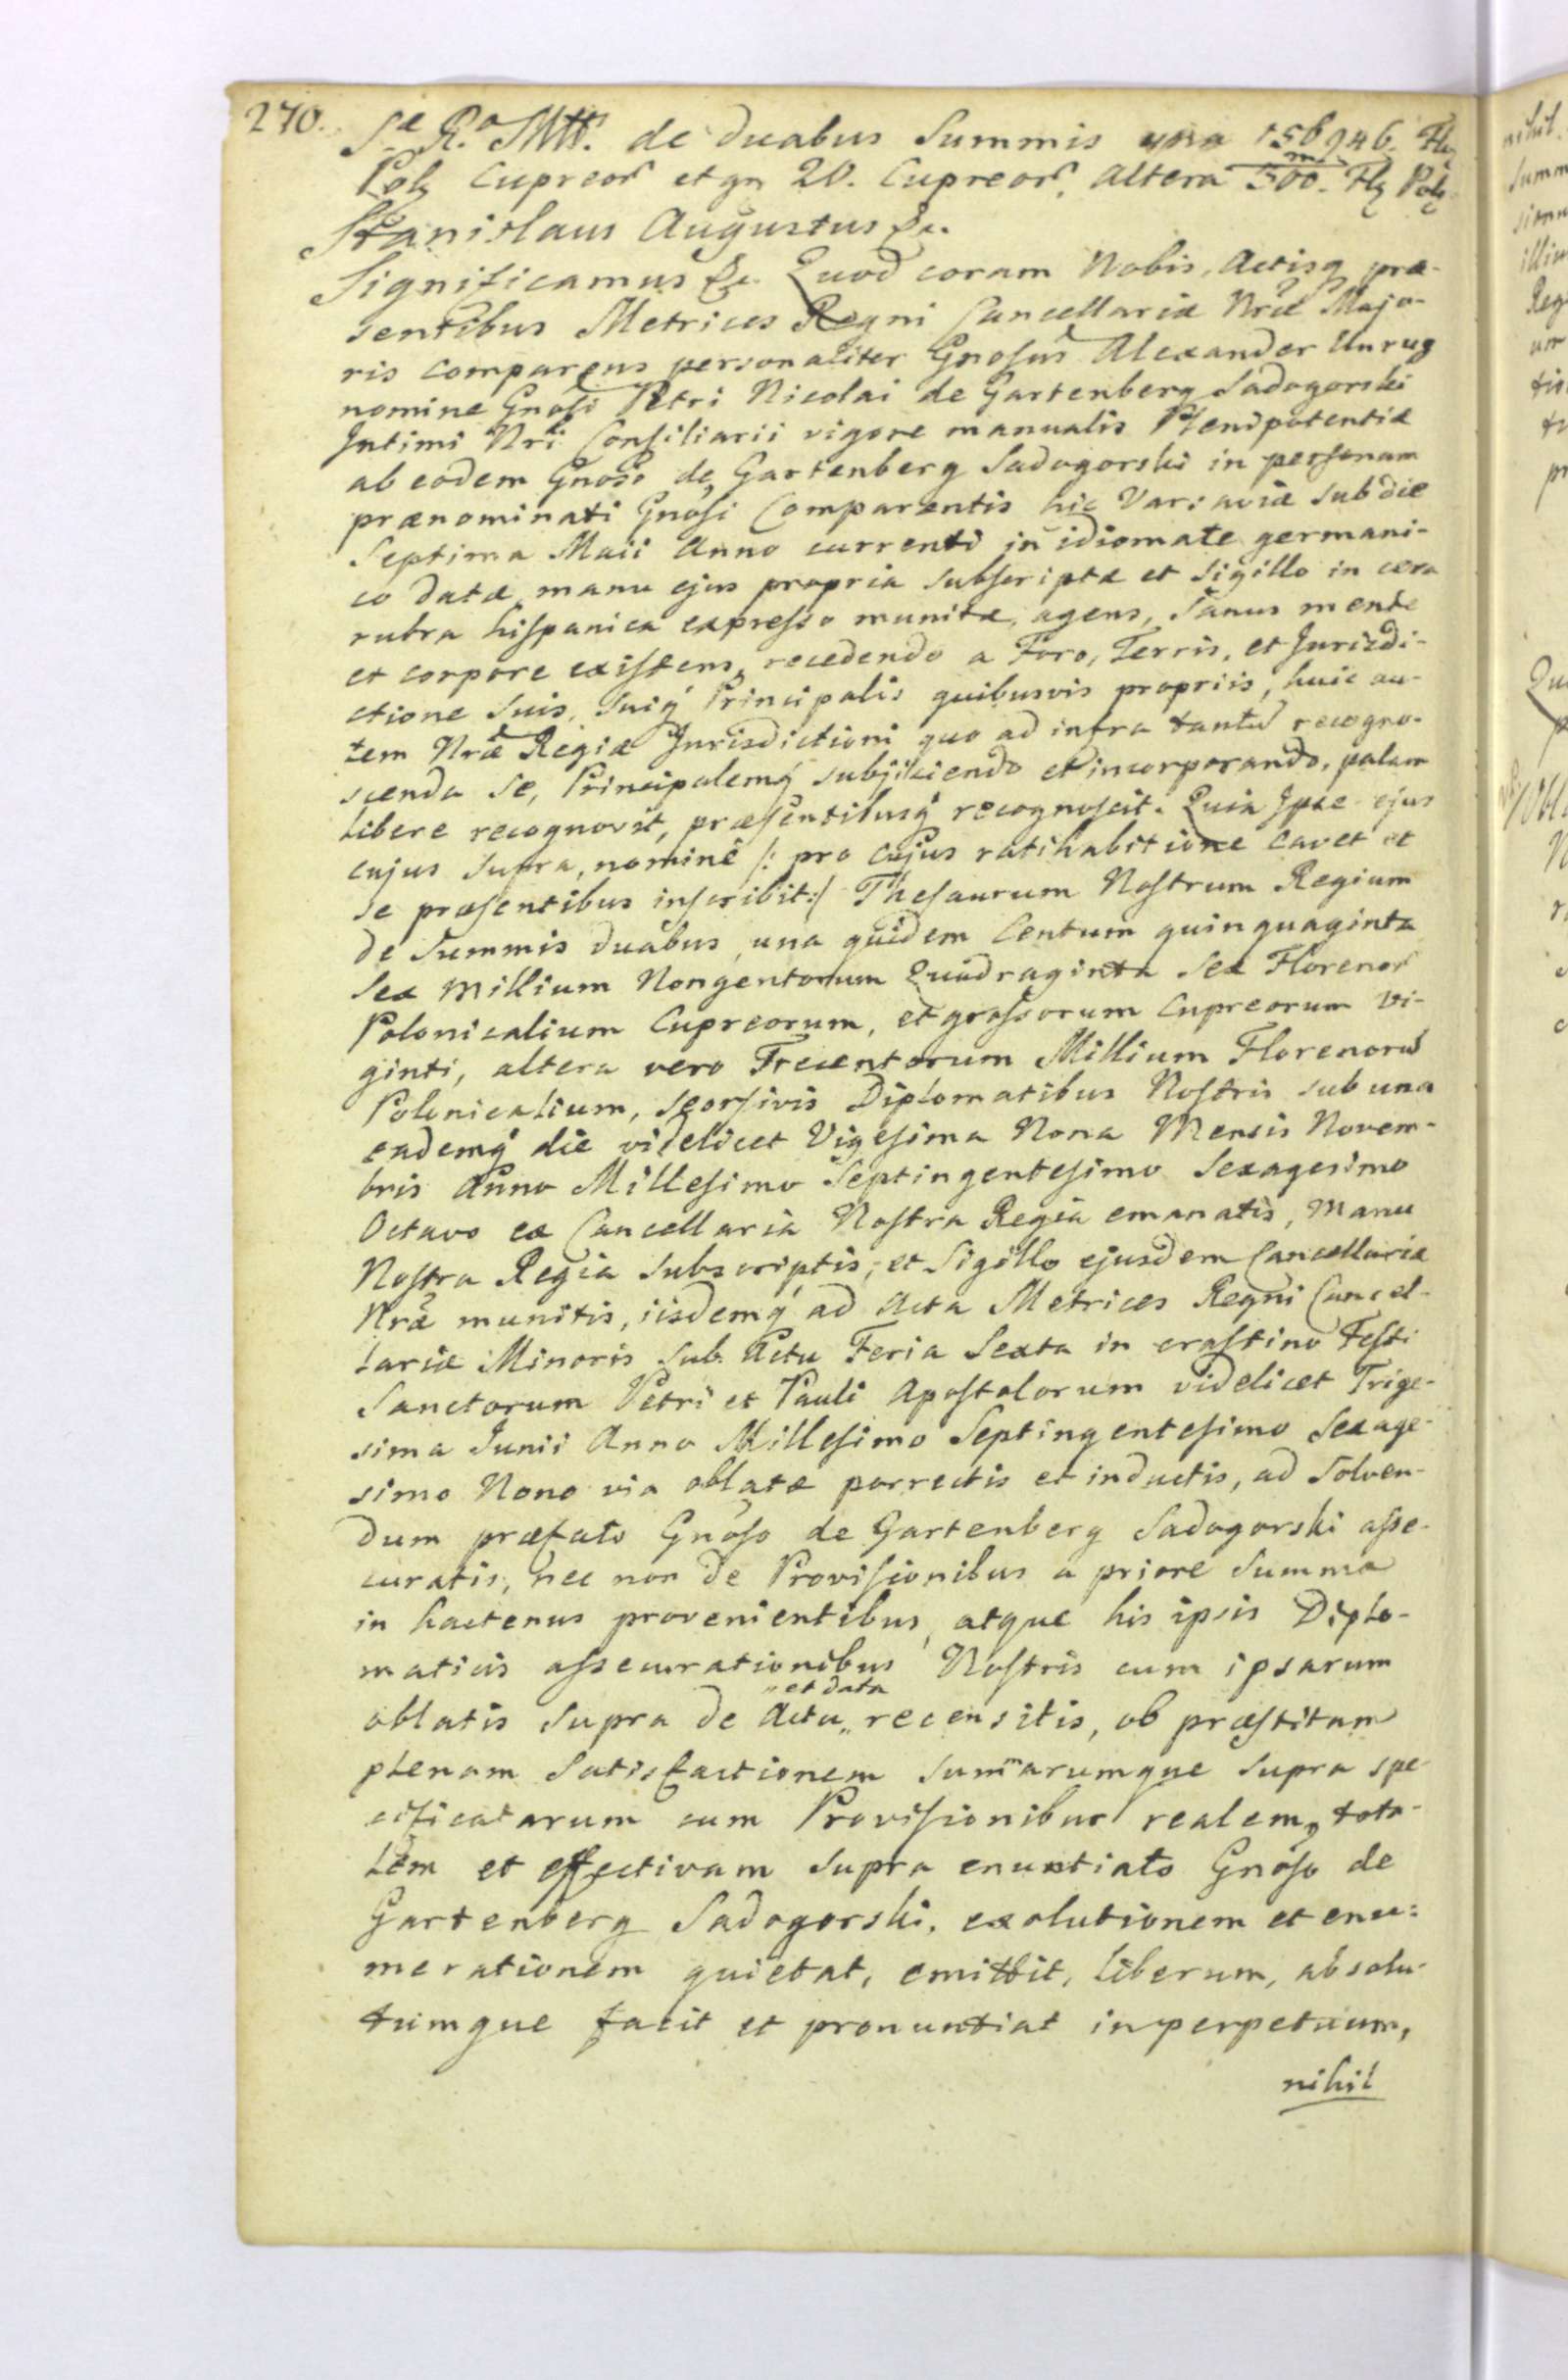 270. S.ᵉ R.ᵃ Mtt. de duabus Summis una 156946. Flǫ
Polǫ Cupreoꝝ et gr 20. Cupreoꝝ, altera 300.ᵐ Flǫ Polǫ
Stanislaus Augustus &c.
Significamus &c. Quod coram Nobis, Actisq præ-
sentibus Metrices Regni Cancellariæ Nræ Majo-
ris comparens personaliter Gnosus Alexander Unrug
nomine Gnosi Petri Nicolai de Gartenberg Sadogorski
Intimi Nri Consiliarii vigore manualis Plenipotentiæ
ab eodem Gnoso de Gartenberg Sadogorski in personam
prænominati Gnosi Comparentis hic Varsaviæ sub die
Septima Maii Anno currenti in idiomate germani-
co datæ, manu ejus propria subscriptæ et sigillo in cera
rubra hispanica expresso munitæ, agens, sanus mente
et corpore existens, recedendo a Foro, Terris, et Jurisdi-
ctione suis, suiq́ Principalis quibusvis propriis, huic au-
tem Nræ Regiæ Jurisdictioni quo ad infra tantũ recogno-
scenda se, Principalemq́ subjiciendo et incorporando, palam
libere recognovit, præsentibusq́ recognoscit. Quia Ipse ejus
cujus supra, nomine /: pro cujus ratihabitione cavet et
se præsentibus inscribit:/ Thesaurum Nostrum Regium
de Summis duabus, una quidem Centum quinquaginta
Sex Millium Nongentorum Quadraginta Sex Florenoꝝ
Polonicalium Cupreorum, et grossorum Cupreorum Vi-
ginti, altera vero Trecentorum Millium Florenorũ
Polonicalium, seorsivis Diplomatibus Nostris sub una
eademq́ die videlicet Vigesima Nona Mensis Novem-
bris Anno Millesimo Septingentesimo Sexagesimo
Octavo ex Cancellaria Nostra Regia emanatis, Manu
Nostra Regia subscriptis, et Sigillo ejusdem Cancellariæ
Nræ munitis, iisdemq́ ad Acta Metrices Regni Cancel-
lariæ Minoris sub Actu Feria Sexta in crastino Festi
Sanctorum Petri et Pauli Apostolorum videlicet Trige-
sima Junii Anno Millesimo Septingentesimo Sexage-
simo Nono via oblatæ porrectis et inductis, ad solven-
dum præfato Gnoso de Gartenberg Sadogorski asse-
curatis, nec non de Provisionibus a priore Summa
in hactenus provenientibus, atque his ipsis Diplo-
maticis assecurationibus Nostris cum ipsarum
oblatis supra de Actu „et data„ recensitis, ob præstitam
plenam satisfactionem sum̃arumque supra spe-
cificatarum cum Provisionibus realem, tota-
lem et effectivam supra enuntiato Gnoso de
Gartenberg Sadogorski, exolutionem et enu:
merationem quietat, emittit, liberum, absolu-
tumque facit et pronuntiat in perpetuum,
nihil